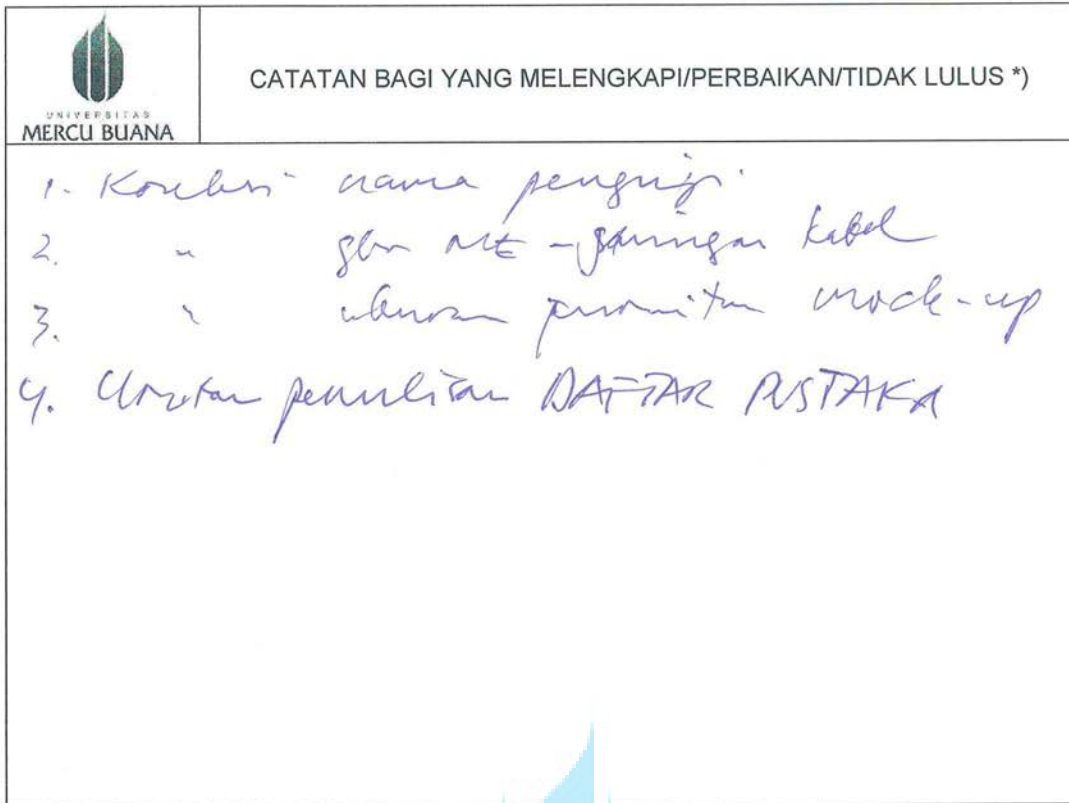 UNIVERSITAS
MERCU BUANA
CATATAN BAGI YANG MELENGKAPI/PERBAIKAN/TIDAK LULUS *)
1. Koreksi nama penguji
2. " gbr ME - jaringan kabel
3. " ukuran mock-up
4. Urutan penulisan DAFTAR PUSTAKA